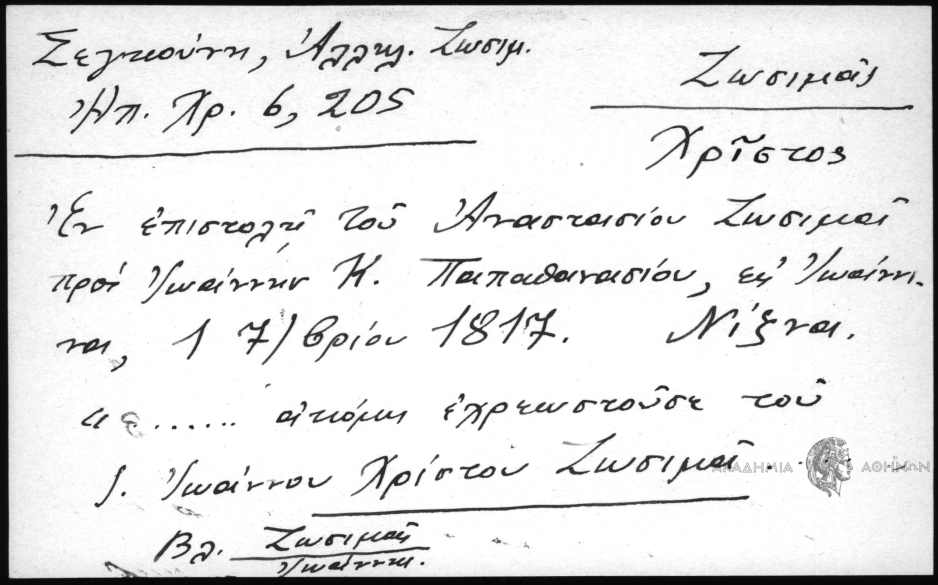 Σεγκούνη, Ἀλληλ. Ζωσιμ.
Ἠπ. Χρ. 6, 205
Ζωσιμᾶς
Χρῖστος
Ἐν ἐπιστολῇ τοῦ Ἀναστασίου Ζωσιμᾶ
πρὸς Ἰωάννην Κ. Παπαθανασίου, εἰς Ἰωάννι-
να, 1 7/βρίου 1817. Νίζνα.
" ...... ἀκόμη ἐχρεωστοῦσε τοῦ
Ἰωάννου Χρίστου Ζωσιμᾶ.....
Βλ. Ζωσιμᾶς
Ἰωάννης.
ΑΚΑΔΗΜΙΑ ΑΘΗΝΩΝ